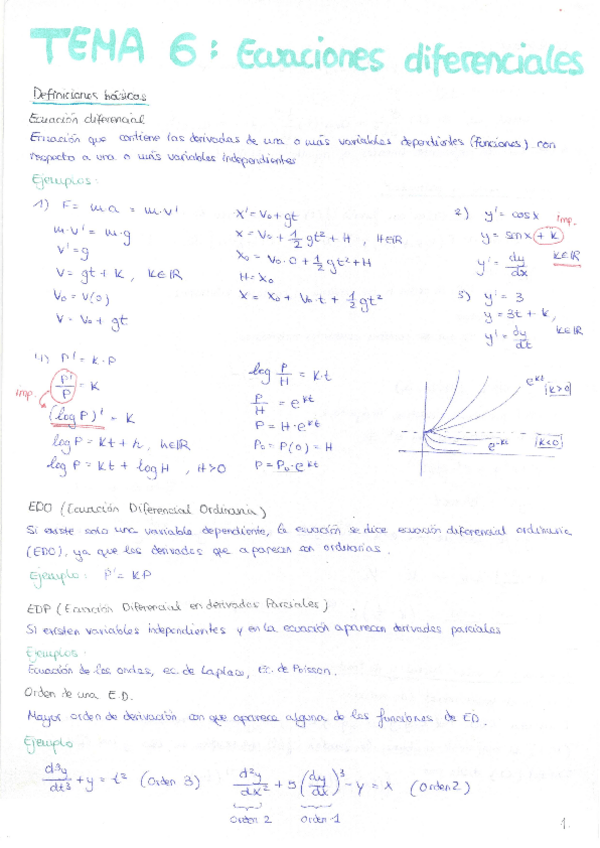 TEMA 6: Ecuaciones diferenciales
Definiciones básicas
Ecuación diferencial
Ecuación que contiene las derivadas de una o más variables dependientes (funciones) con
respecto a una o más variables independientes
Ejemplos:
1) F = m·a = m·v'
m·v' = m·g
v' = g
v = gt + K, K∈ℝ
V₀ = V(0)
V = V₀ + gt
x' = V₀ + gt
x = V₀ + 1/2 gt² + H, H∈ℝ
x₀ = V₀·0 + 1/2 gt² + H
H = x₀
x = x₀ + V₀·t + 1/2 gt²
2) y' = cosx
imp.
y = senx + K
K∈ℝ
y' = dy/dx
3) y' = 3
y = 3t + k,
K∈ℝ
y' = dy/dt
4) P' = K·P
P'/P = K
imp.
(log P)' = K
log P = Kt + h, h∈ℝ
log P = Kt + log H, H>0
log P/H = K·t
P/H = e^Kt
P = H·e^Kt
P₀ = P(0) = H
P = P₀·e^Kt
e^Kt
|K>0|
e^-Kt
|K<0|
EDO (Ecuación Diferencial Ordinaria)
Si existe solo una variable dependiente, la ecuación se dice ecuación diferencial ordinaria
(EDO), ya que las derivadas que aparecen son ordinarias.
Ejemplo: P' = KP
EDP (Ecuación Diferencial en derivadas Parciales)
Si existen variables independientes y en la ecuación aparecen derivadas parciales
Ejemplos:
Ecuación de las ondas, ec. de Laplace, Ec. de Poisson.
Orden de una E.D.
Mayor orden de derivación con que aparece alguna de las funciones de ED.
Ejemplo
d³y/dt³ + y = t² (Orden 3)
d²y/dx² + 5(dy/dx)³ - y = x (Orden 2)
Orden 2
Orden 1
1.